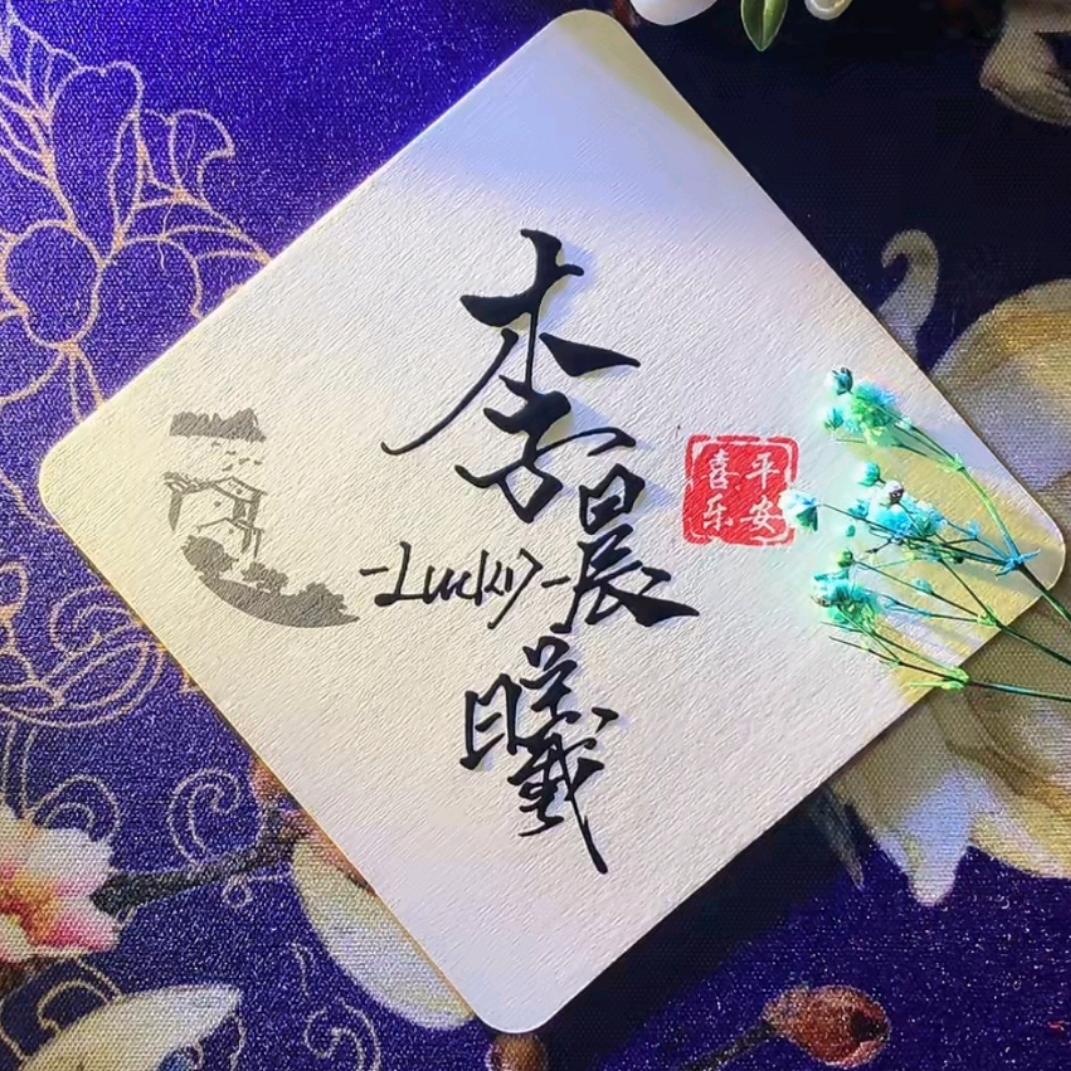 李晨曦
-Lucky-
平安
喜乐